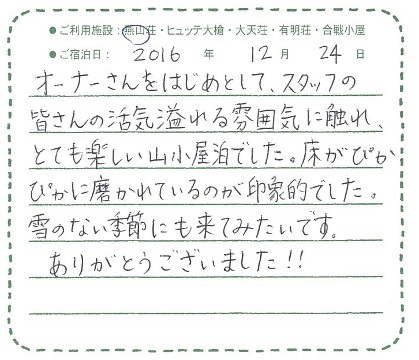 ●ご利用施設：燕山荘・ヒュッテ大槍・大天荘・有明荘・合戦小屋
●ご宿泊日： 2016 年 12 月 24 日
オーナーさんをはじめとして、スタッフの
皆さんの活気溢れる雰囲気に触れ、
とても楽しい山小屋泊でした。床がぴか
ぴかに磨かれているのが印象的でした。
雪のない季節にも来てみたいです。
ありがとうございました!!